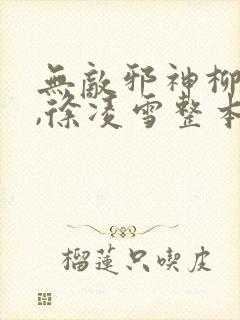 無敵邪神柳
,徐凌雪整本
榴蓮只喫皮